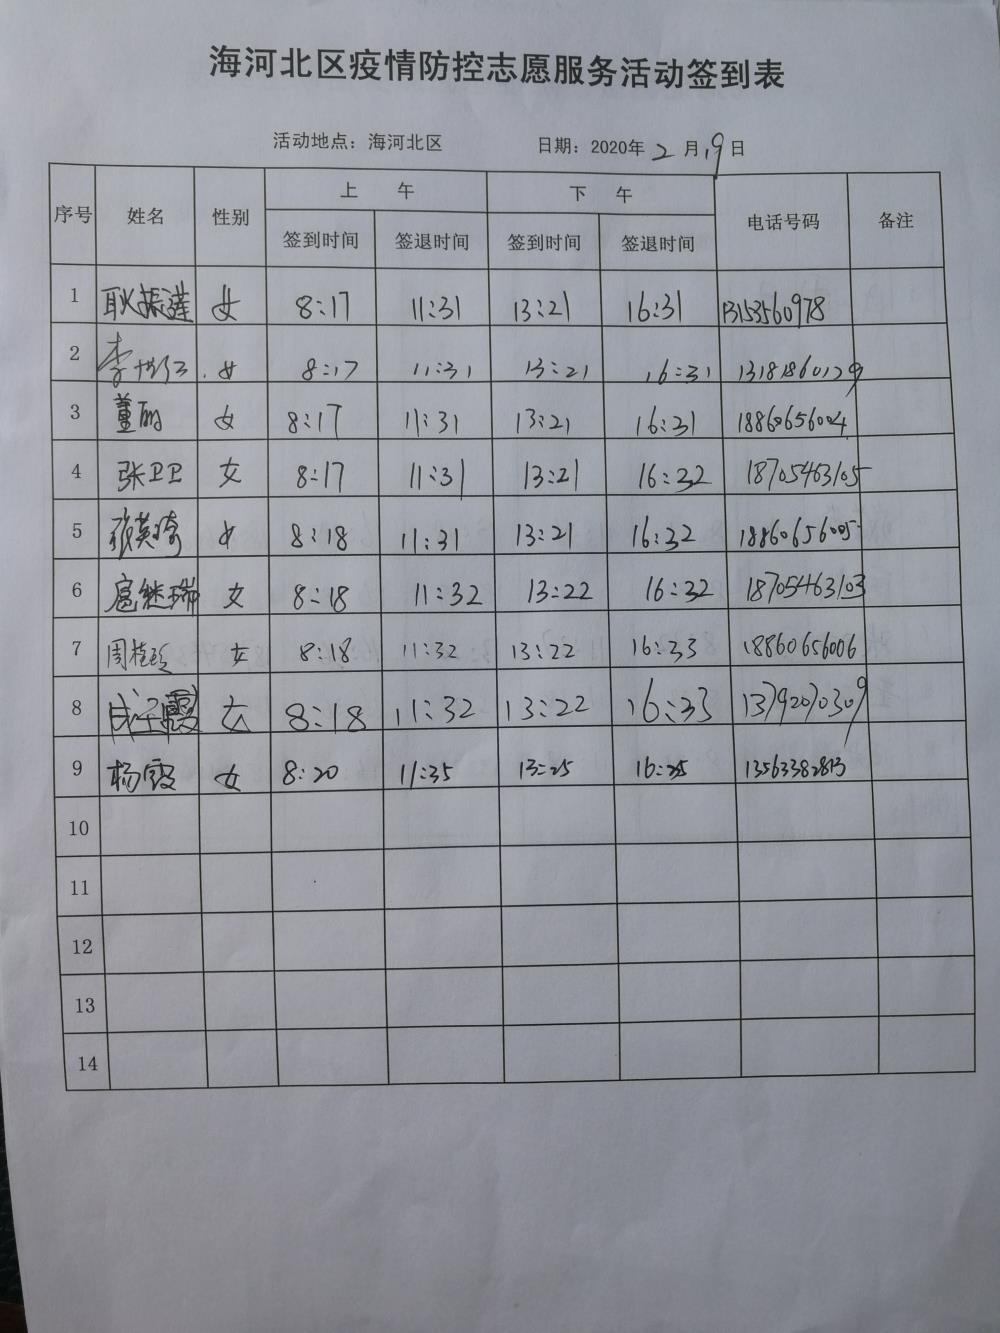 海河北区疫情防控志愿服务活动签到表
活动地点：海河北区 日期：2020年2月19日
序号 姓名 性别 上 午 下 午 电话号码 备注
签到时间 签退时间 签到时间 签退时间
1 耿振莲 女 8:17 11:31 13:21 16:31 13153560978
2 李 女 8:17 11:31 13:21 16:31 13181860129
3 董丽 女 8:17 11:31 13:21 16:31 18860656004
4 张卫卫 女 8:17 11:31 13:21 16:32 18705463105
5 张英琦 女 8:18 11:31 13:21 16:32 18860656005
6 扈继瑞 女 8:18 11:32 13:22 16:32 18705463103
7 周桂珍 女 8:18 11:32 13:22 16:33 18860656006
8 成玉霞 女 8:18 11:32 13:22 16:33 13792070309
9 杨霞 女 8:20 11:35 13:25 16:25 13563382813
10
11
12
13
14